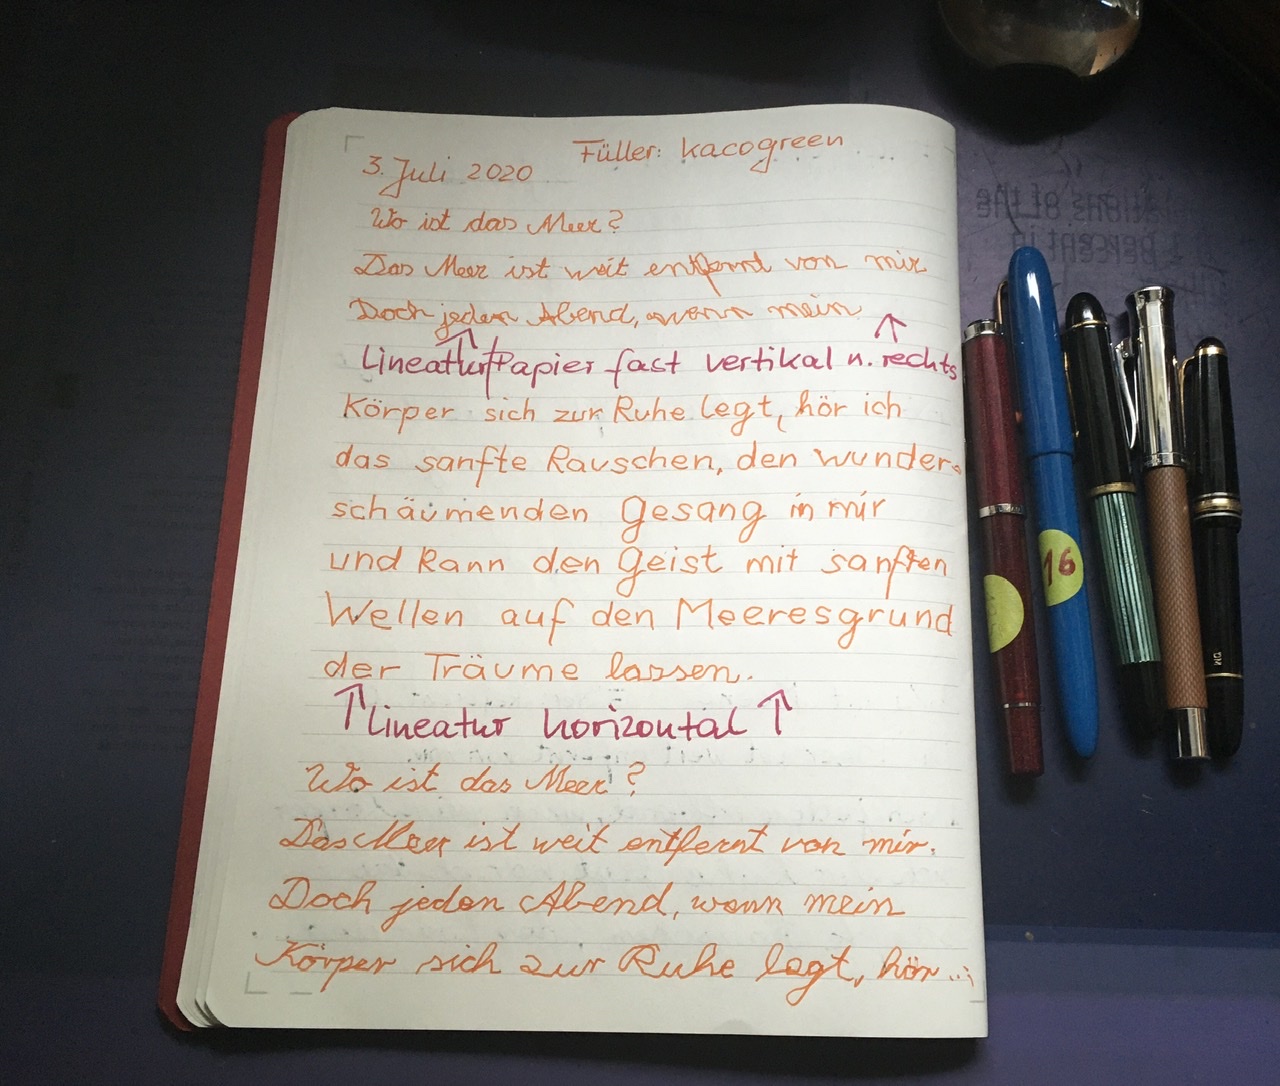 Füller: kacogreen
3. Juli 2020
Wo ist das Meer?
Das Meer ist weit entfernt von mir
Doch jeden Abend, wenn mein
Lineatur/Papier fast vertikal n. rechts
Körper sich zur Ruhe legt, hör ich
das sanfte Rauschen, den wunder-
schäumenden Gesang in mir
und kann den Geist mit sanften
Wellen auf den Meeresgrund
der Träume lassen.
Lineatur horizontal
Wo ist das Meer?
Das Meer ist weit entfernt von mir.
Doch jeden Abend, wenn mein
Körper sich zur Ruhe legt, hör...
16